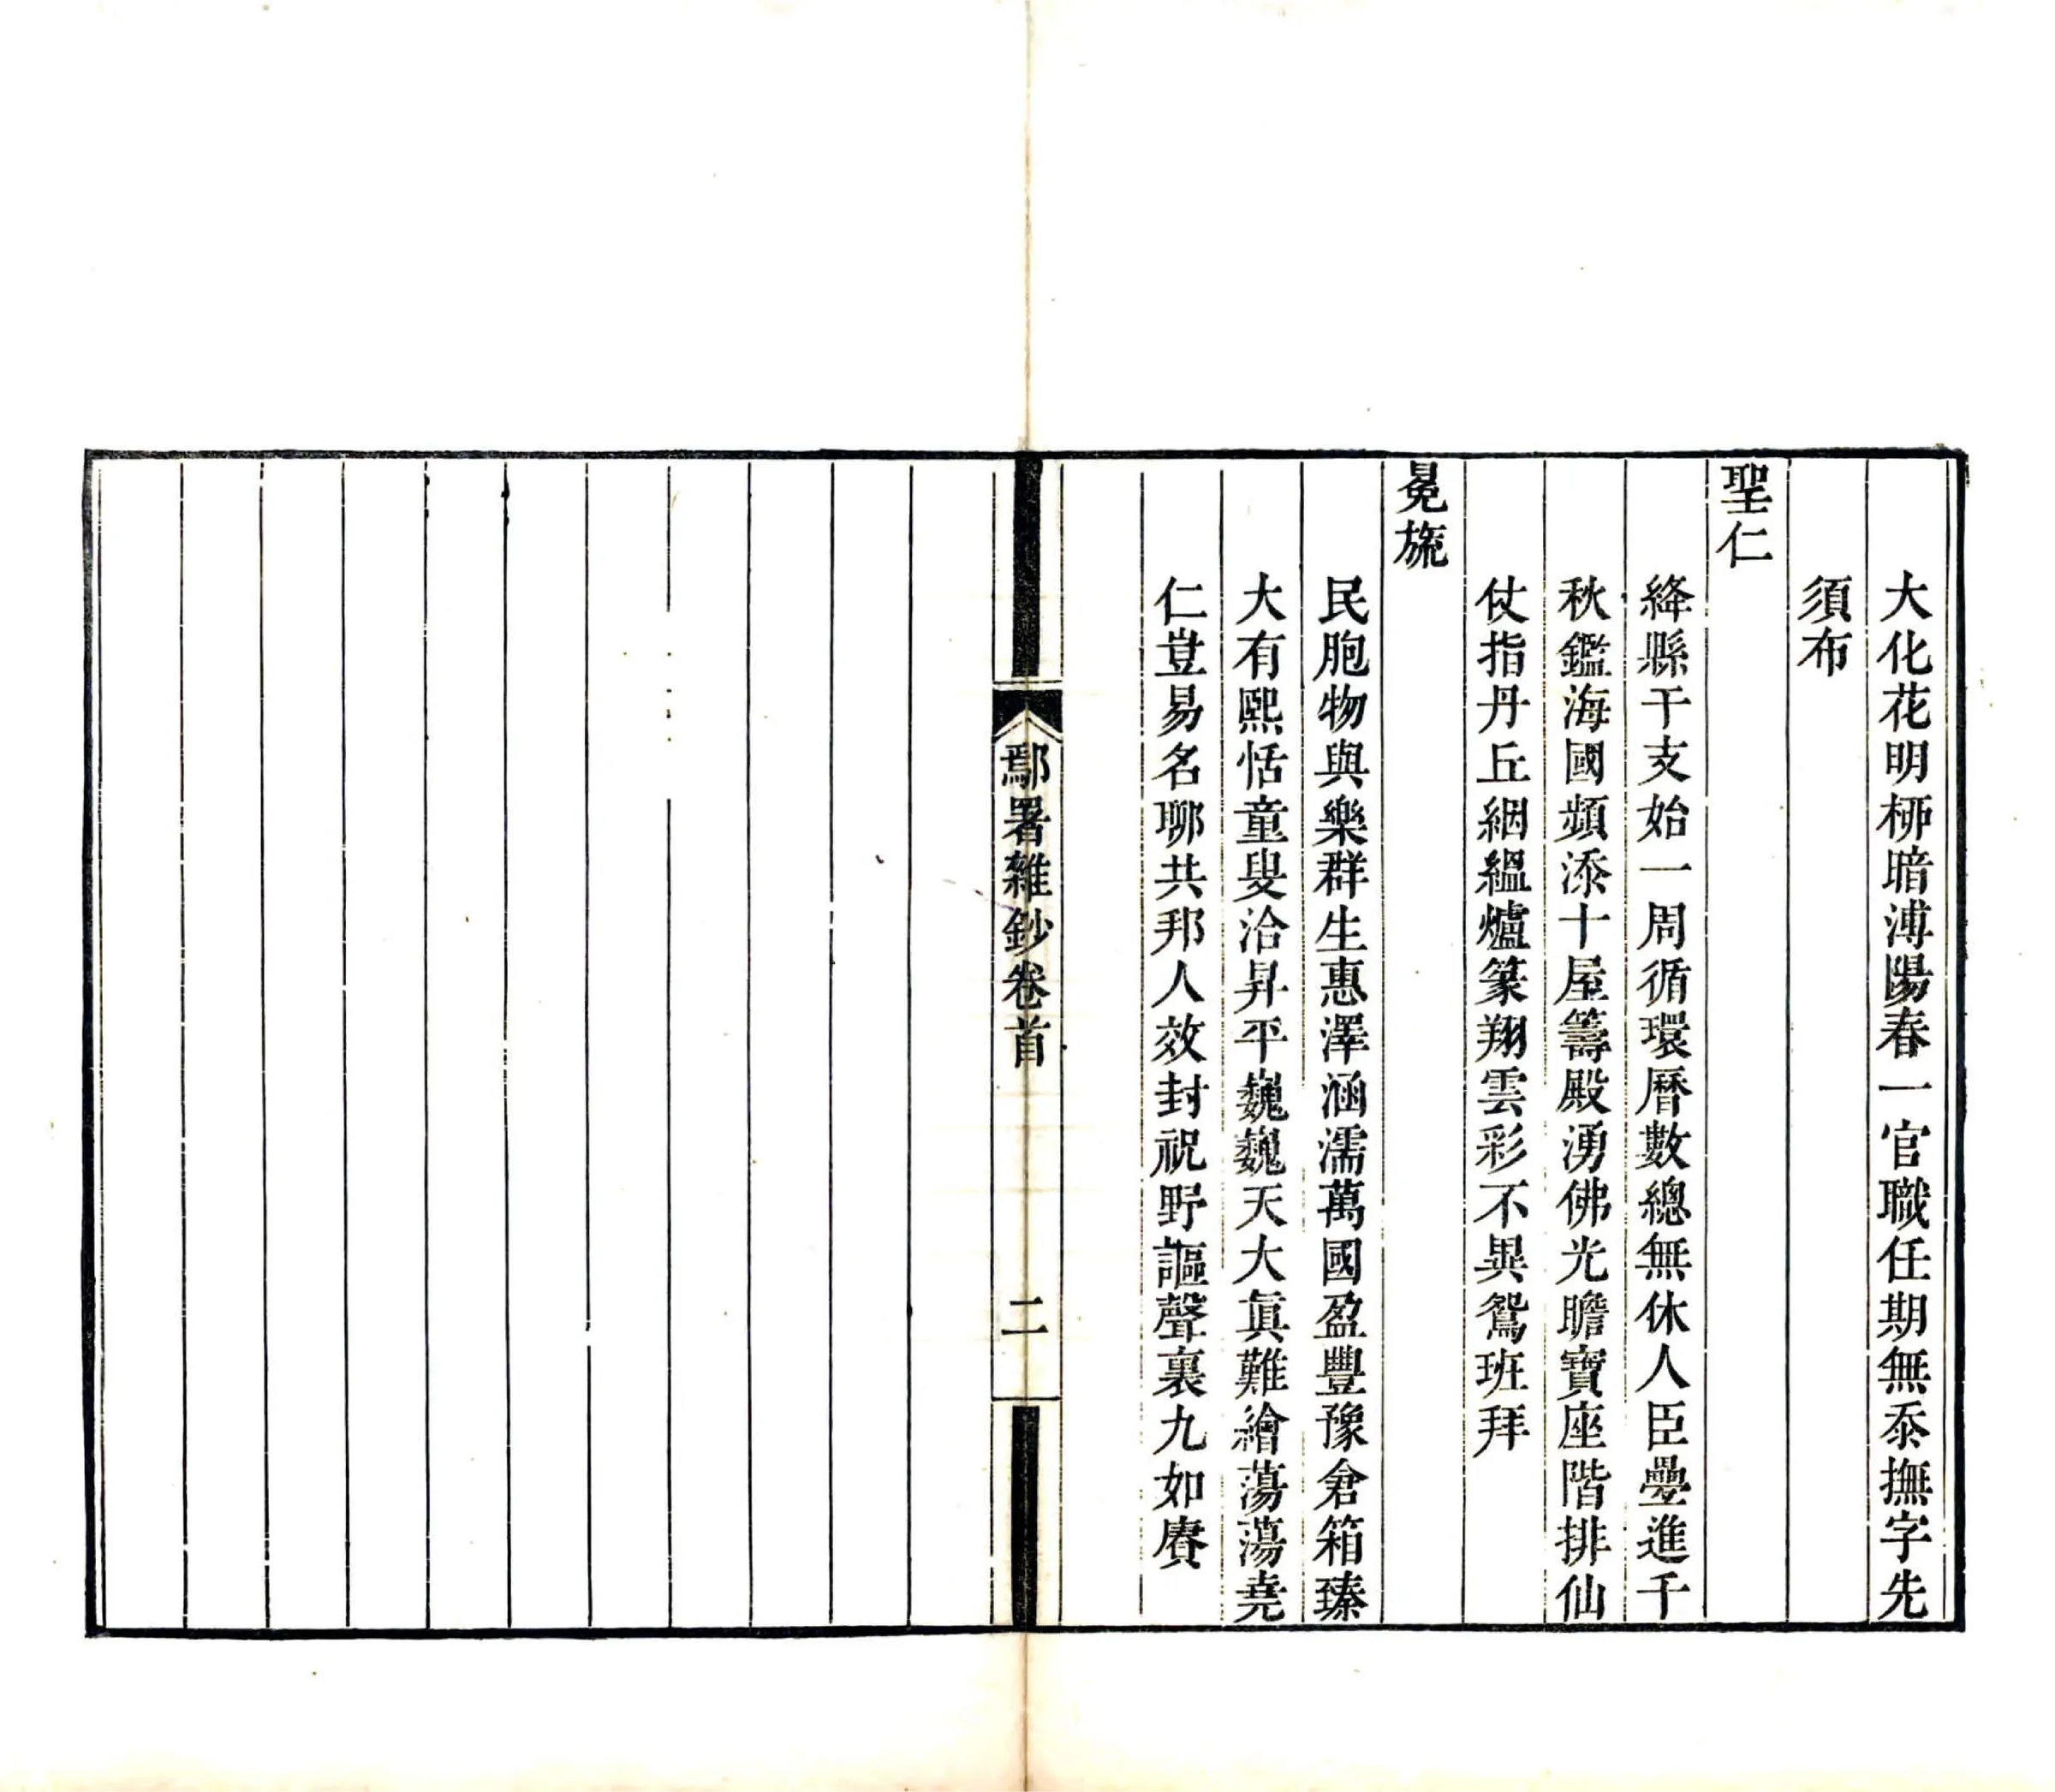 大化花明柳暗溥陽春一官職任期無忝撫字先
須布
聖仁
絳縣干支始一周循環曆數總無休人臣疊進千
秋鑑海國頻添十屋籌殿湧佛光瞻寶座階排仙
仗指丹丘絪縕爐篆翔雲彩不異鴛班拜
冕旒
民胞物與樂群生惠澤涵濡萬國盈豐豫倉箱臻
大有熙恬童叟洽昇平巍巍天大眞難繪蕩蕩堯
仁豈易名聊共邦人效封祝野謳聲裏九如賡
鄢署雜鈔卷首
二